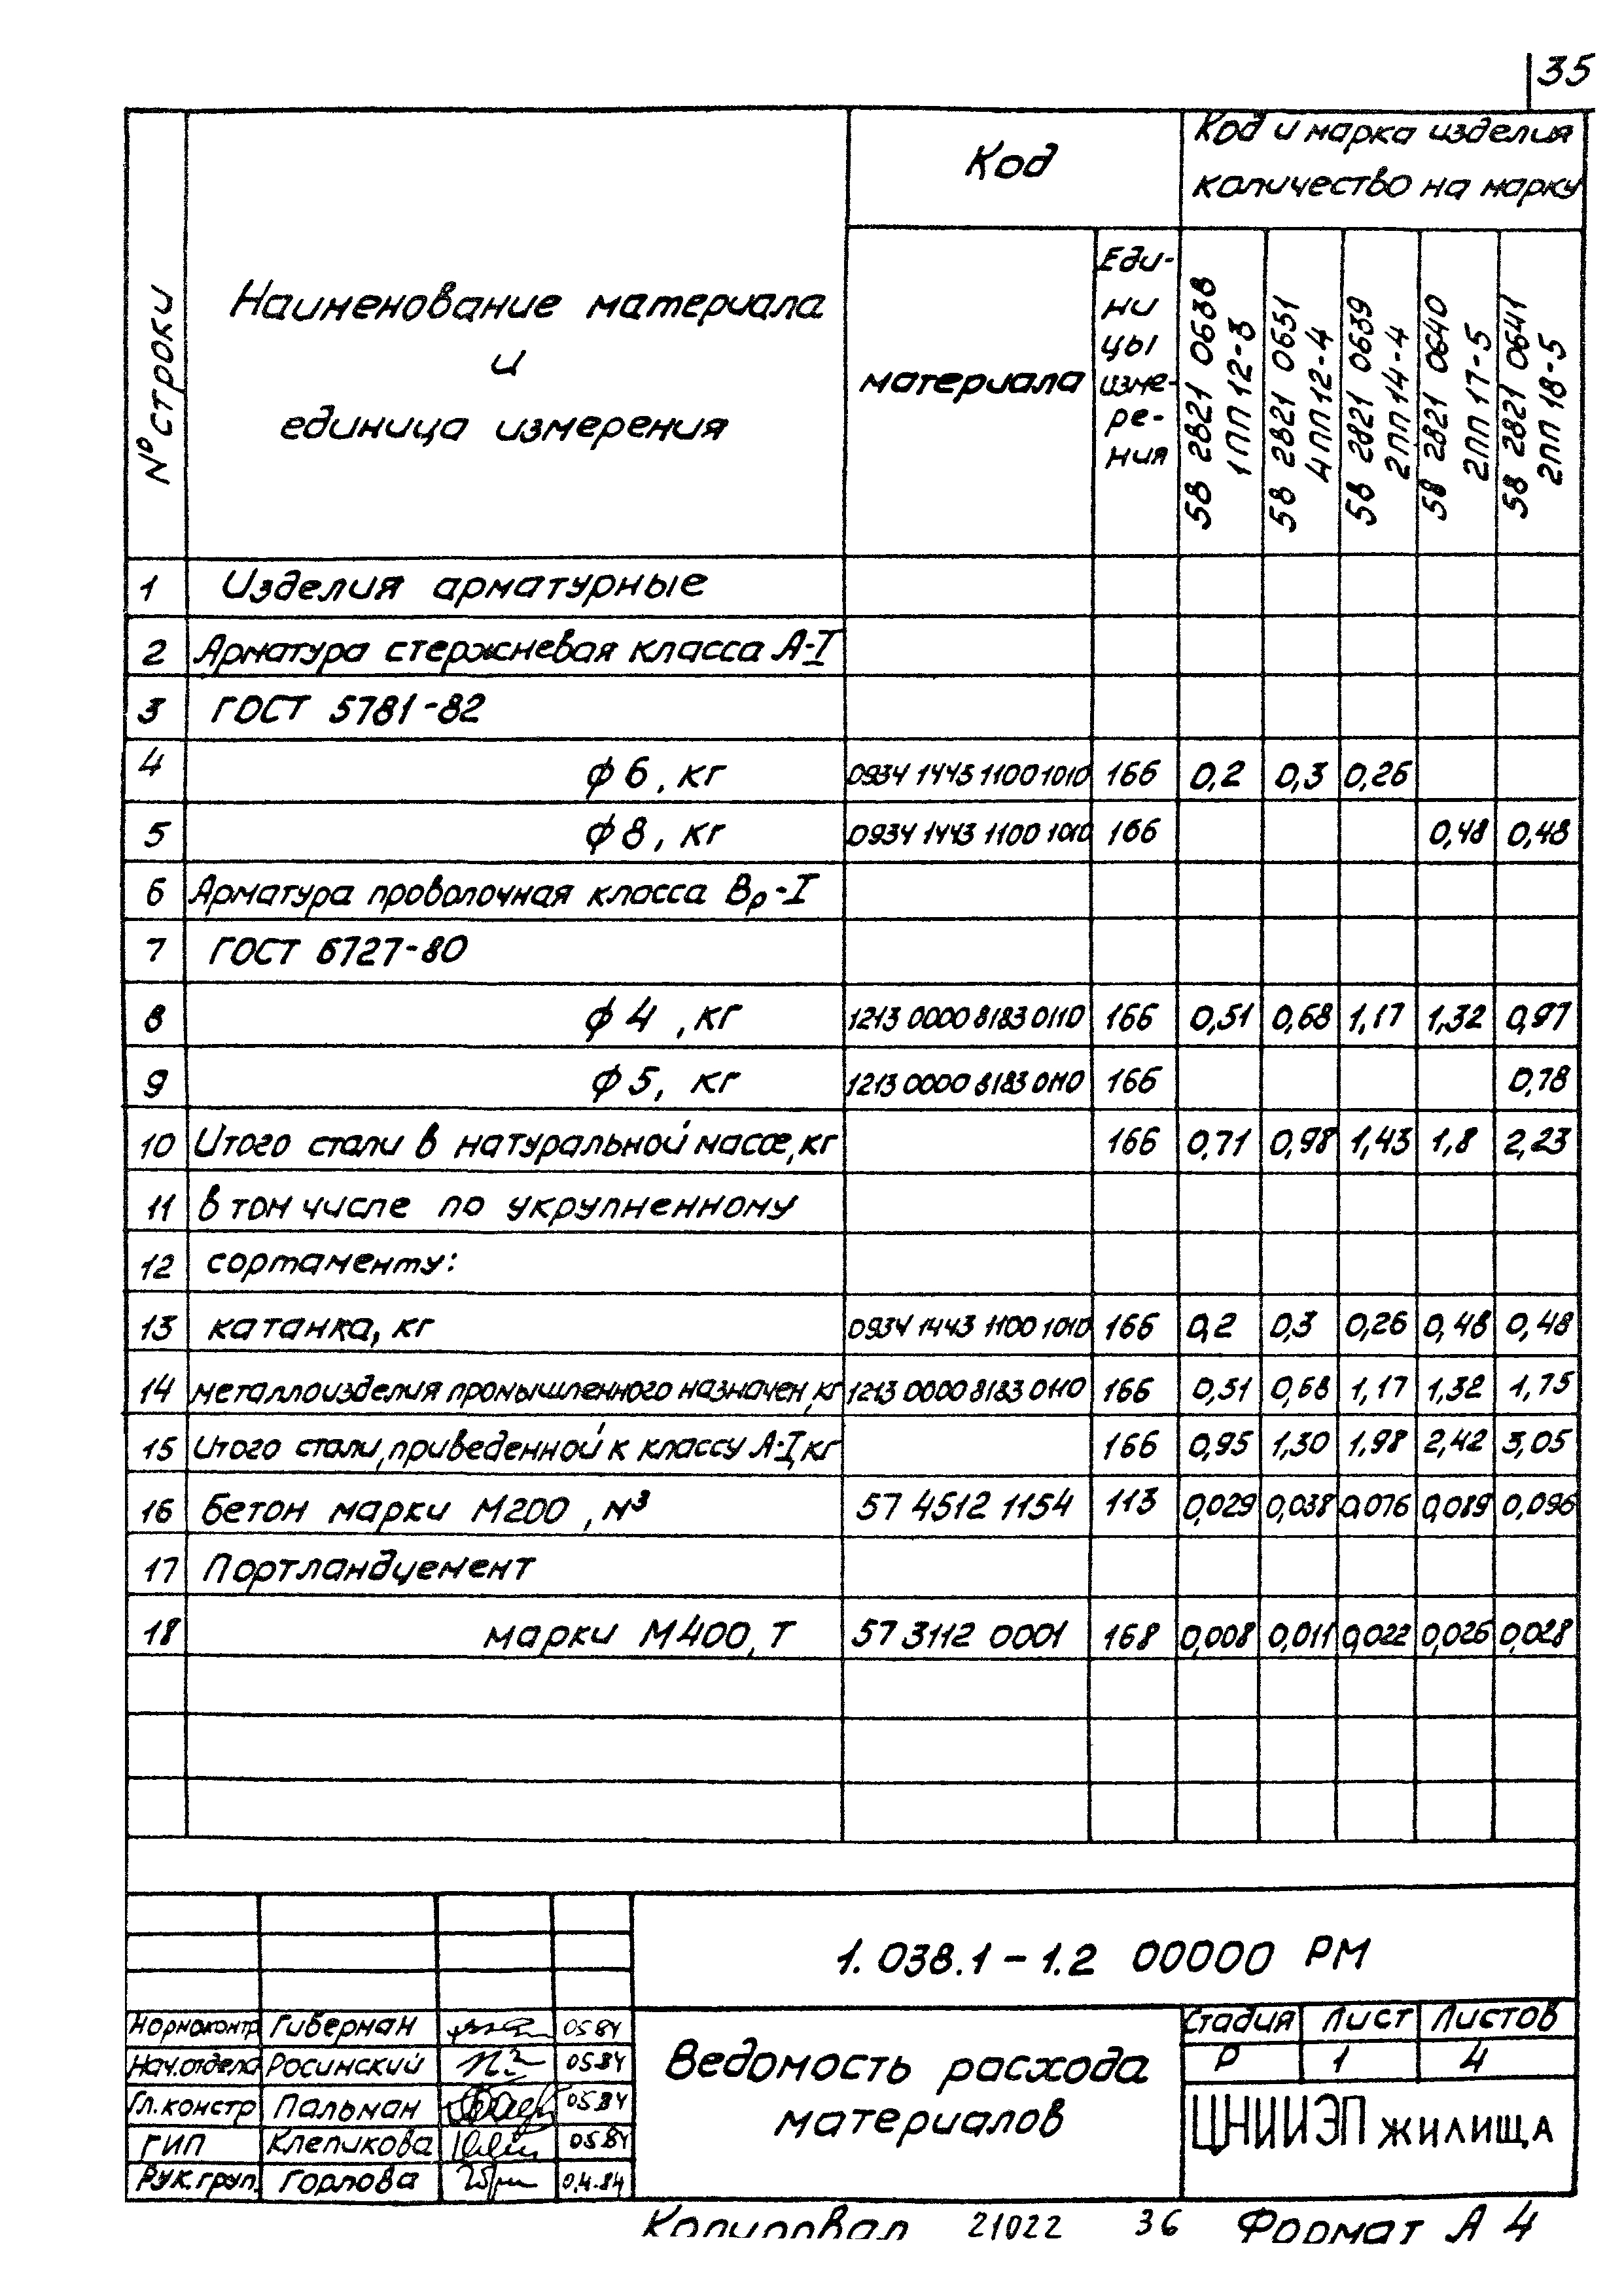 35
№ строки
Наименование материала
и
единица измерения
Код
Код и марка изделия
количество на марку
материала
Еди-
ни
цы
изме-
ре-
ния
58 2821 0638
1ПП 12-3
58 2821 0651
4ПП 12-4
58 2821 0639
2ПП 14-4
58 2821 0640
2ПП 17-5
58 2821 0641
2ПП 18-5
1 Изделия арматурные
2 Арматура стержневая класса А-I
3 ГОСТ 5781-82
4 ф 6, кг 0934 1443 1100 1010 166 0,2 0,3 0,26
5 ф 8, кг 0934 1443 1100 1010 166 0,48 0,48
6 Арматура проволочная класса Вр-I
7 ГОСТ 6727-80
8 ф 4, кг 1213 0000 8183 0110 166 0,51 0,68 1,17 1,32 0,97
9 ф 5, кг 1213 0000 8183 0110 166 0,78
10 Итого стали в натуральной массе, кг 166 0,71 0,98 1,43 1,8 2,23
11 в том числе по укрупненному
12 сортаменту:
13 катанка, кг 0934 1443 1100 1010 166 0,2 0,3 0,26 0,48 0,48
14 металлоизделия промышленного назначен, кг 1213 0000 8183 0110 166 0,51 0,68 1,17 1,32 1,75
15 Итого стали, приведенной к классу А-I, кг 166 0,95 1,30 1,98 2,42 3,05
16 Бетон марки М200, м³ 57 4512 1154 113 0,029 0,038 0,076 0,089 0,096
17 Портландцемент
18 марки М400, Т 57 3112 0001 168 0,008 0,011 0,022 0,026 0,028
1.038.1-1.2 00000 РМ
Нормоконтр Гиберман 05 84
Нач.отдела Росинский 05.84
Гл.констр Пальман 05.84
ГИП Клепикова 05.84
Рук.груп. Горлова 04.84
Ведомость расхода
материалов
Стадия Лист Листов
Р 1 4
ЦНИИЭП жилища
Копировал 21022 36 Формат А4